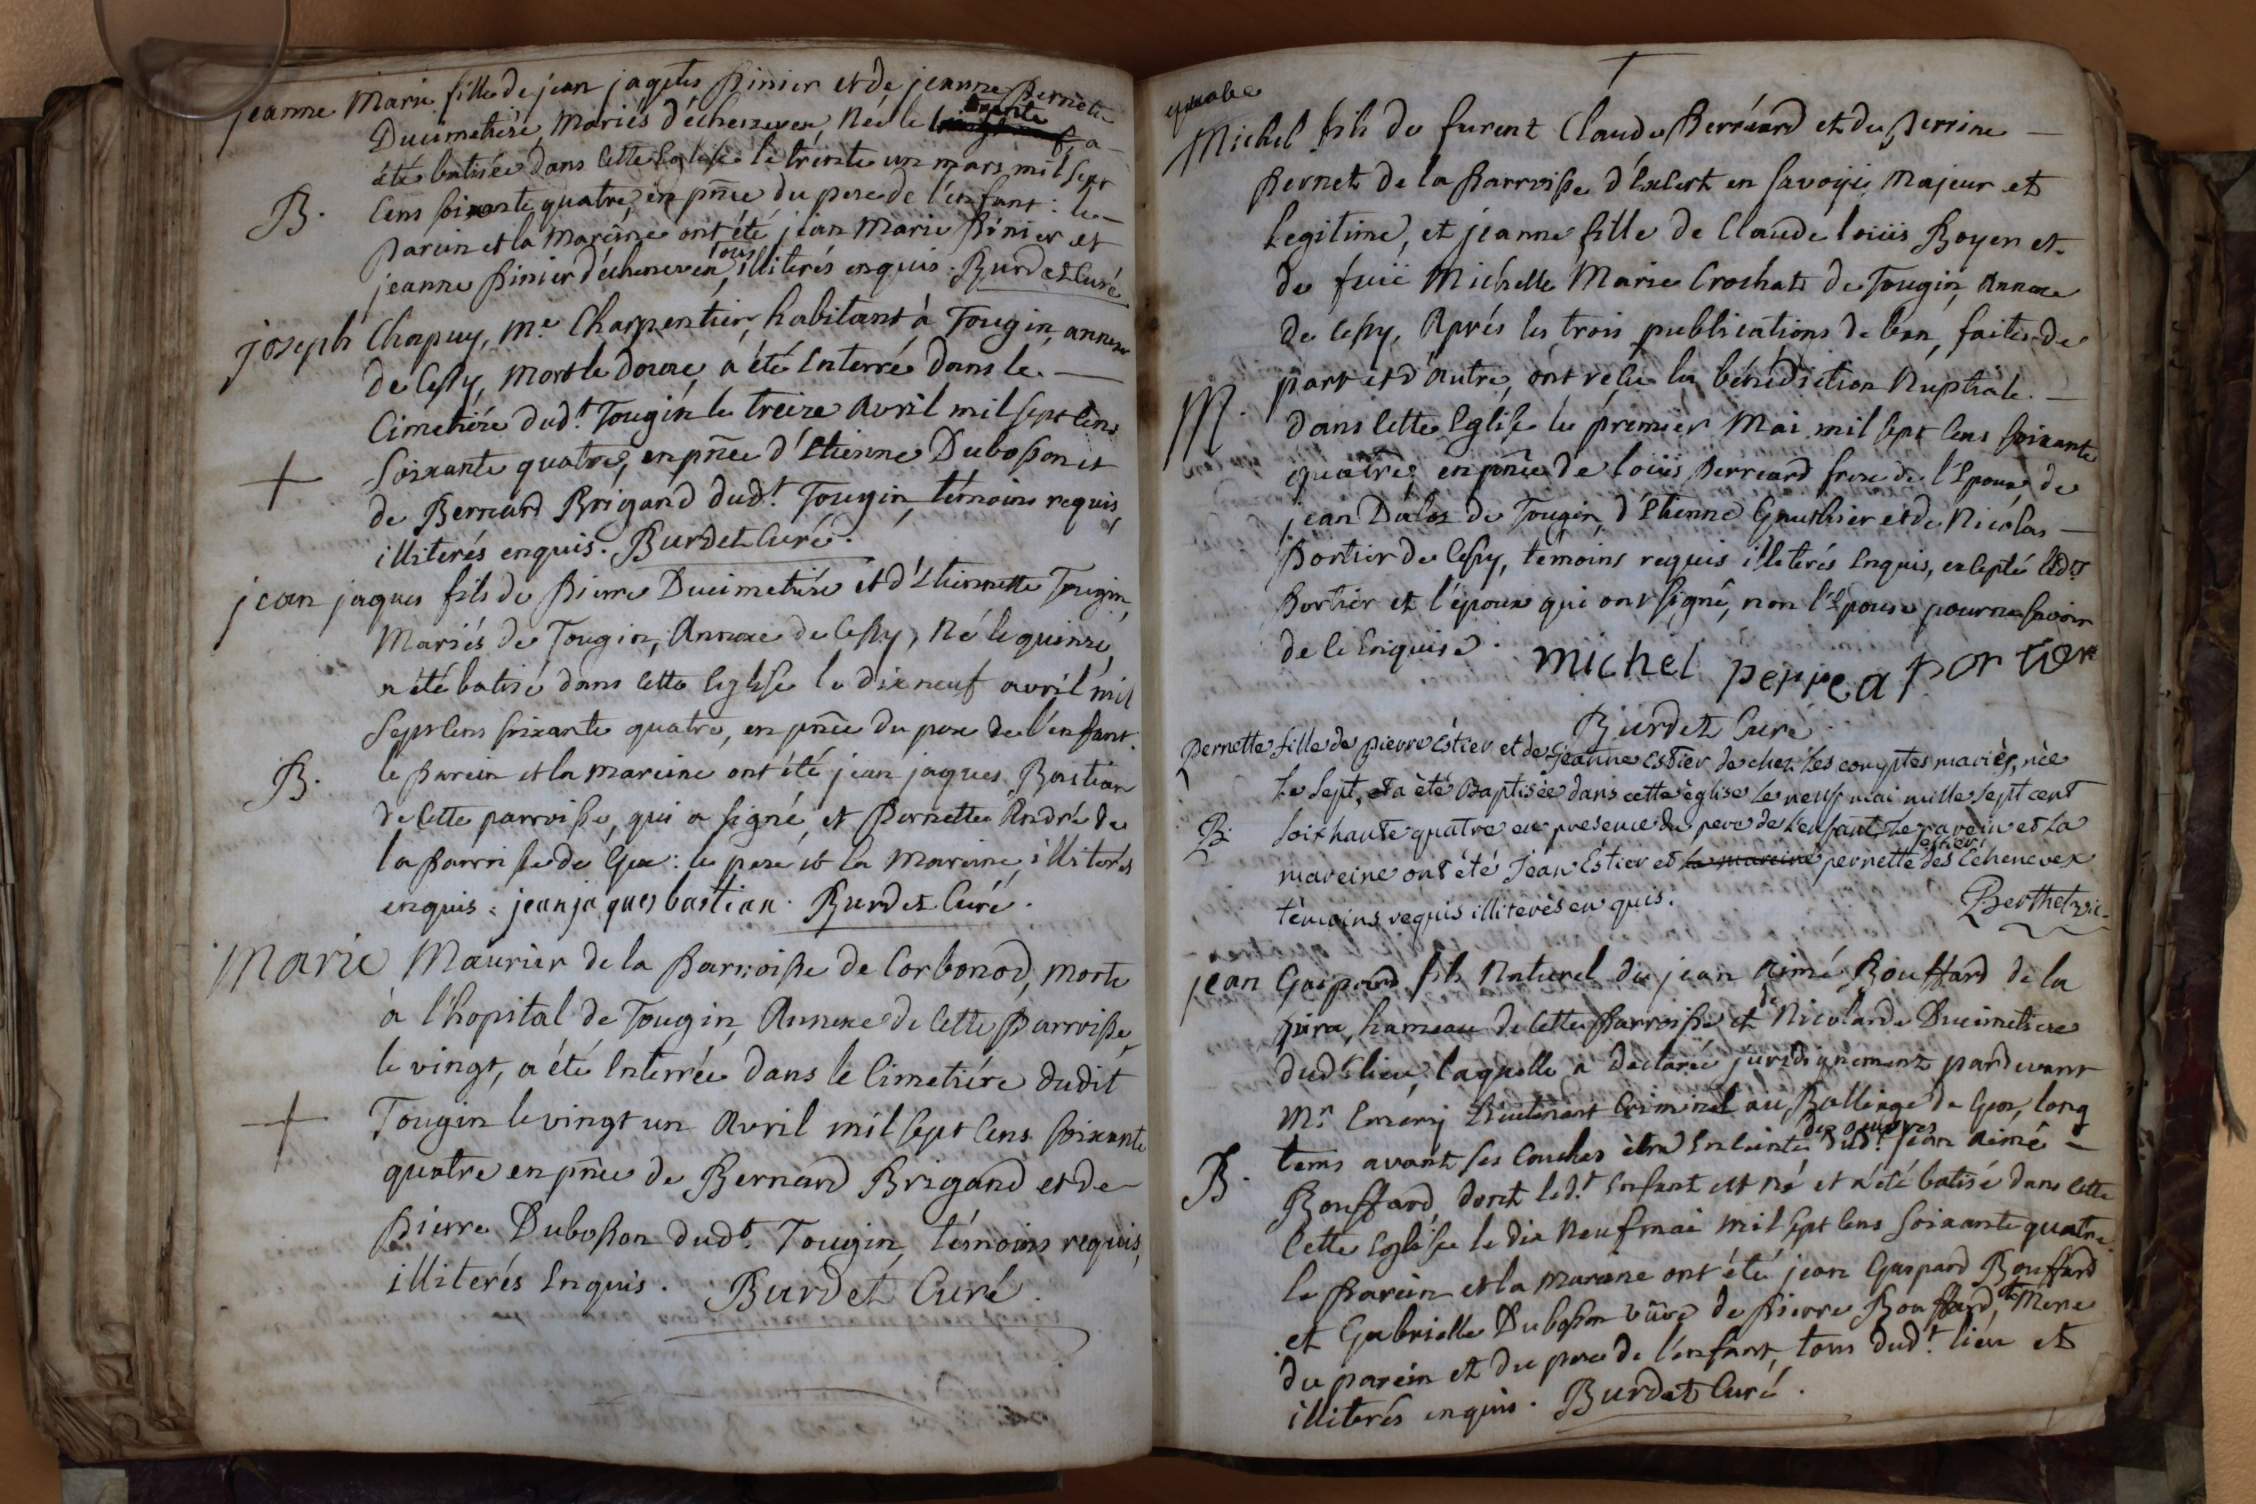 jeanne Marie fille de jean jaques Pinier et de jeanne Pernete
Ducimetiére, Mariés d'échenevex, Née le trente a
été batisée dans cette Eglise le trente un mars mil sept
B. Cens soixante quatre, en pñce du pere de l'enfant : le
parein et la Mareine ont été jean Marie Pinier et
jeanne Pinier d'echenevex, tous illiterés enquis. Burdet Curé
joseph Chapuy, Me. Charpentier, habitant à Tougin, annexe
de Cessy, mort le douze, a été Enterré dans le
Cimetiére dudt. Tougin le treize Avril mil sept Cens
+ Soixante quatre, en pñce d'Etienne Dubosson et
de Bernard Brigand dudt. Tougin, témoins requis,
illiterés enquis. Burdet Curé.
jean jaques fils de Pierre Ducimetiére et d'Etiennette Tougin,
Mariés de Tougin, Annexe de Cessy, Né le quinze,
a été batisé dans cette Eglise le dix neuf avril mil
Sept Cens soixante quatre, en pñce du pere de l'enfant.
B. le parein et la mareine ont été jean jaques Bastian
de Cette parroisse, qui a signé, et Pernette André de
la Parroisse de Gex : le pere et la Mareine, illiterés
enquis : jean jaques bastian. Burdet Curé.
Marie Maurier de la Parroisse de Corbonod, morte
à l'hopital de Tougin, Annexe de Cette Parroisse,
le vingt, a été Enterrée dans le Cimetiére dudit
+ Tougin le vingt un Avril mil sept Cens soixante
quatre en pñce de Bernard Brigand et de
Pierre Dubosson dudt. Tougin, témoins requis,
illiterés Enquis. Burdet Curé.
Michel fils de furent Claude Perréard et de Perrine
Pernet de la Parroisse d'Excert en Savoÿe, Majeur et
Legitime, et jeanne fille de Claude loüis Boyer et
de fuïe Michelle Marie Crochat de Tougin, Annexe
de Cessy, Aprés les trois publications de ban, faites de
part et d'Autre, ont reçu la bénédiction Nuptiale.
M. dans Cette Eglise le premier Mai mil sept Cens soixante
quatre, en pñce de loüis Perréard frere de l'Epoux de
jean Daloz de Tougin, d'Etienne Gauthier et de Nicolas
Portier de Cessy, témoins requis illiterés Enquis, excepté ledt.
Portier et l'époux qui ont signé, non l'Epouse pour ne savoir
de ce Enquise. Michel perrea portier
Burdet Curé
Pernette fille de Pierre Estier et de Jeanne Estier de chez les comptes mariès, nèe
Le sept, et a èté Baptisèe dans cette èglise Le neuf mai mille sept cent
B. soixhante quatre en presence du pere de L'enfant, Le parein et La
mareine ont été Jean Estier et la mareine pernette Estier des Echenevex
tèmoins requis illiterès en quis. Berthet vic.
jean Gaspard fils Naturel de jean Aimé Bouffard de la
pira, hameau de Cette Parroisse et de Nicolarde Ducimetiere
dudt. lieu, laquelle a declaré juridiquement pardevant
Mr. Emery Lieutenant Criminel au Balliage de Gex, long
tems avant ses Couches être Enceinte des oeuvres dudt. jean Aimé
B. Bouffard, dont ledt. Enfant est né et a été batisé dans cette
Cette Eglise le dix Neuf mai mil sept Cens soixante quatre.
le Parein et la Mareine ont été jean Gaspard Bouffard
et Gabrielle Dubosson vûve de Pierre Bouffard, et Mere
du parein et du pere de l'enfant, tous dudt. lieu et
illiterés enquis. Burdet Curé.